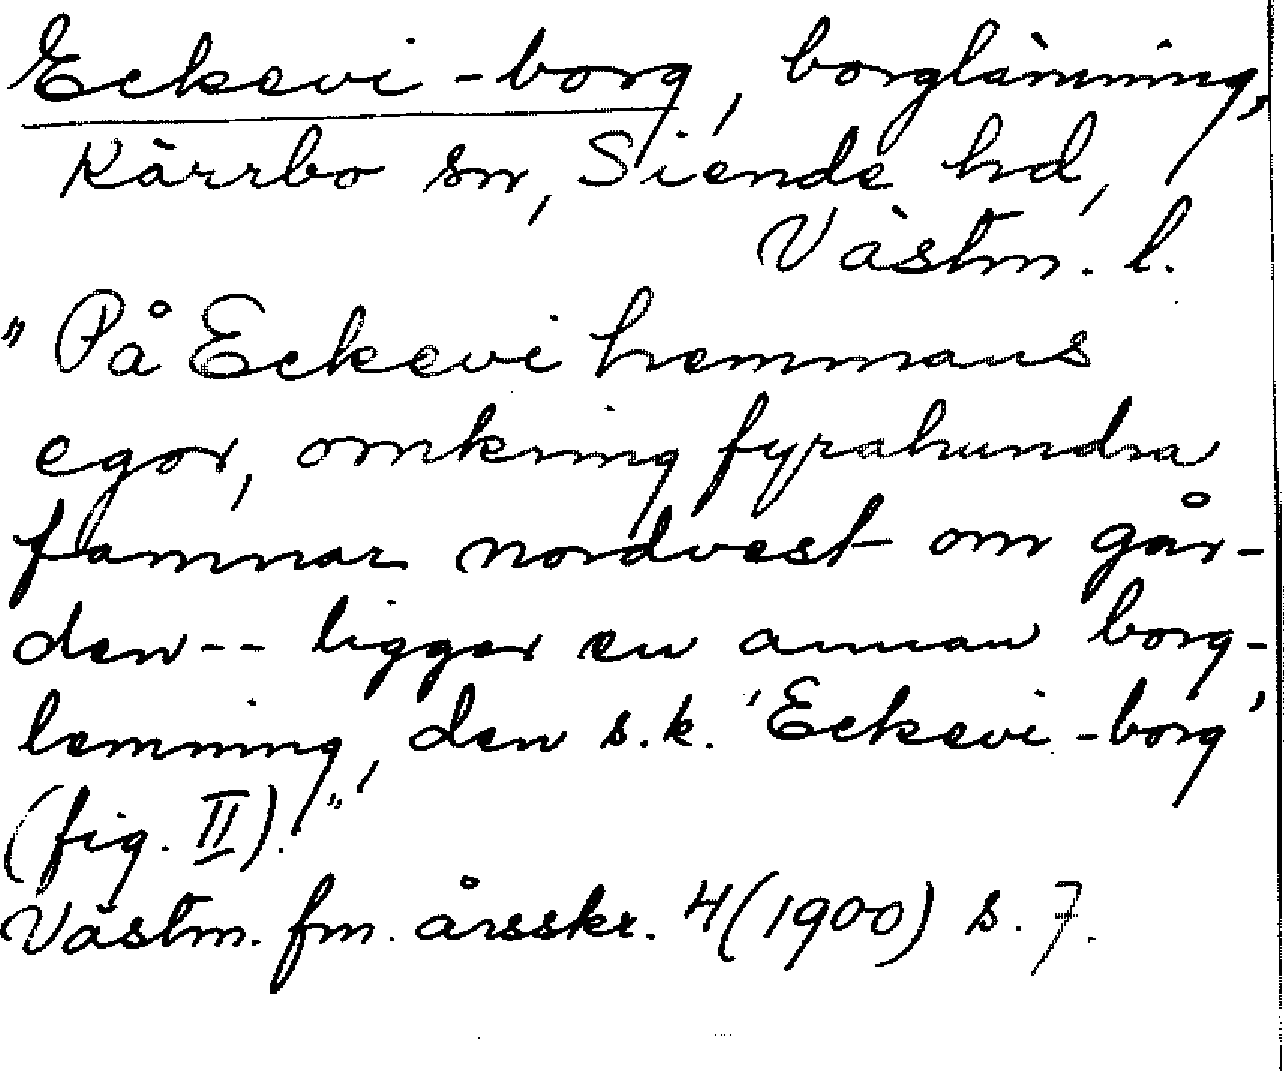 Eckevi-borg, borglämning,
Kärrbo sn, Siende hd,
Västm. l.
"På Eckevi hemmans
egor, omkring fyrahundra
famnar nordvest om går-
den-- ligger en annan borg-
lemning, den s.k. 'Eckevi-borg'
(fig. II)."
Västm. fm. årsskr. 4(1900) s. 7.